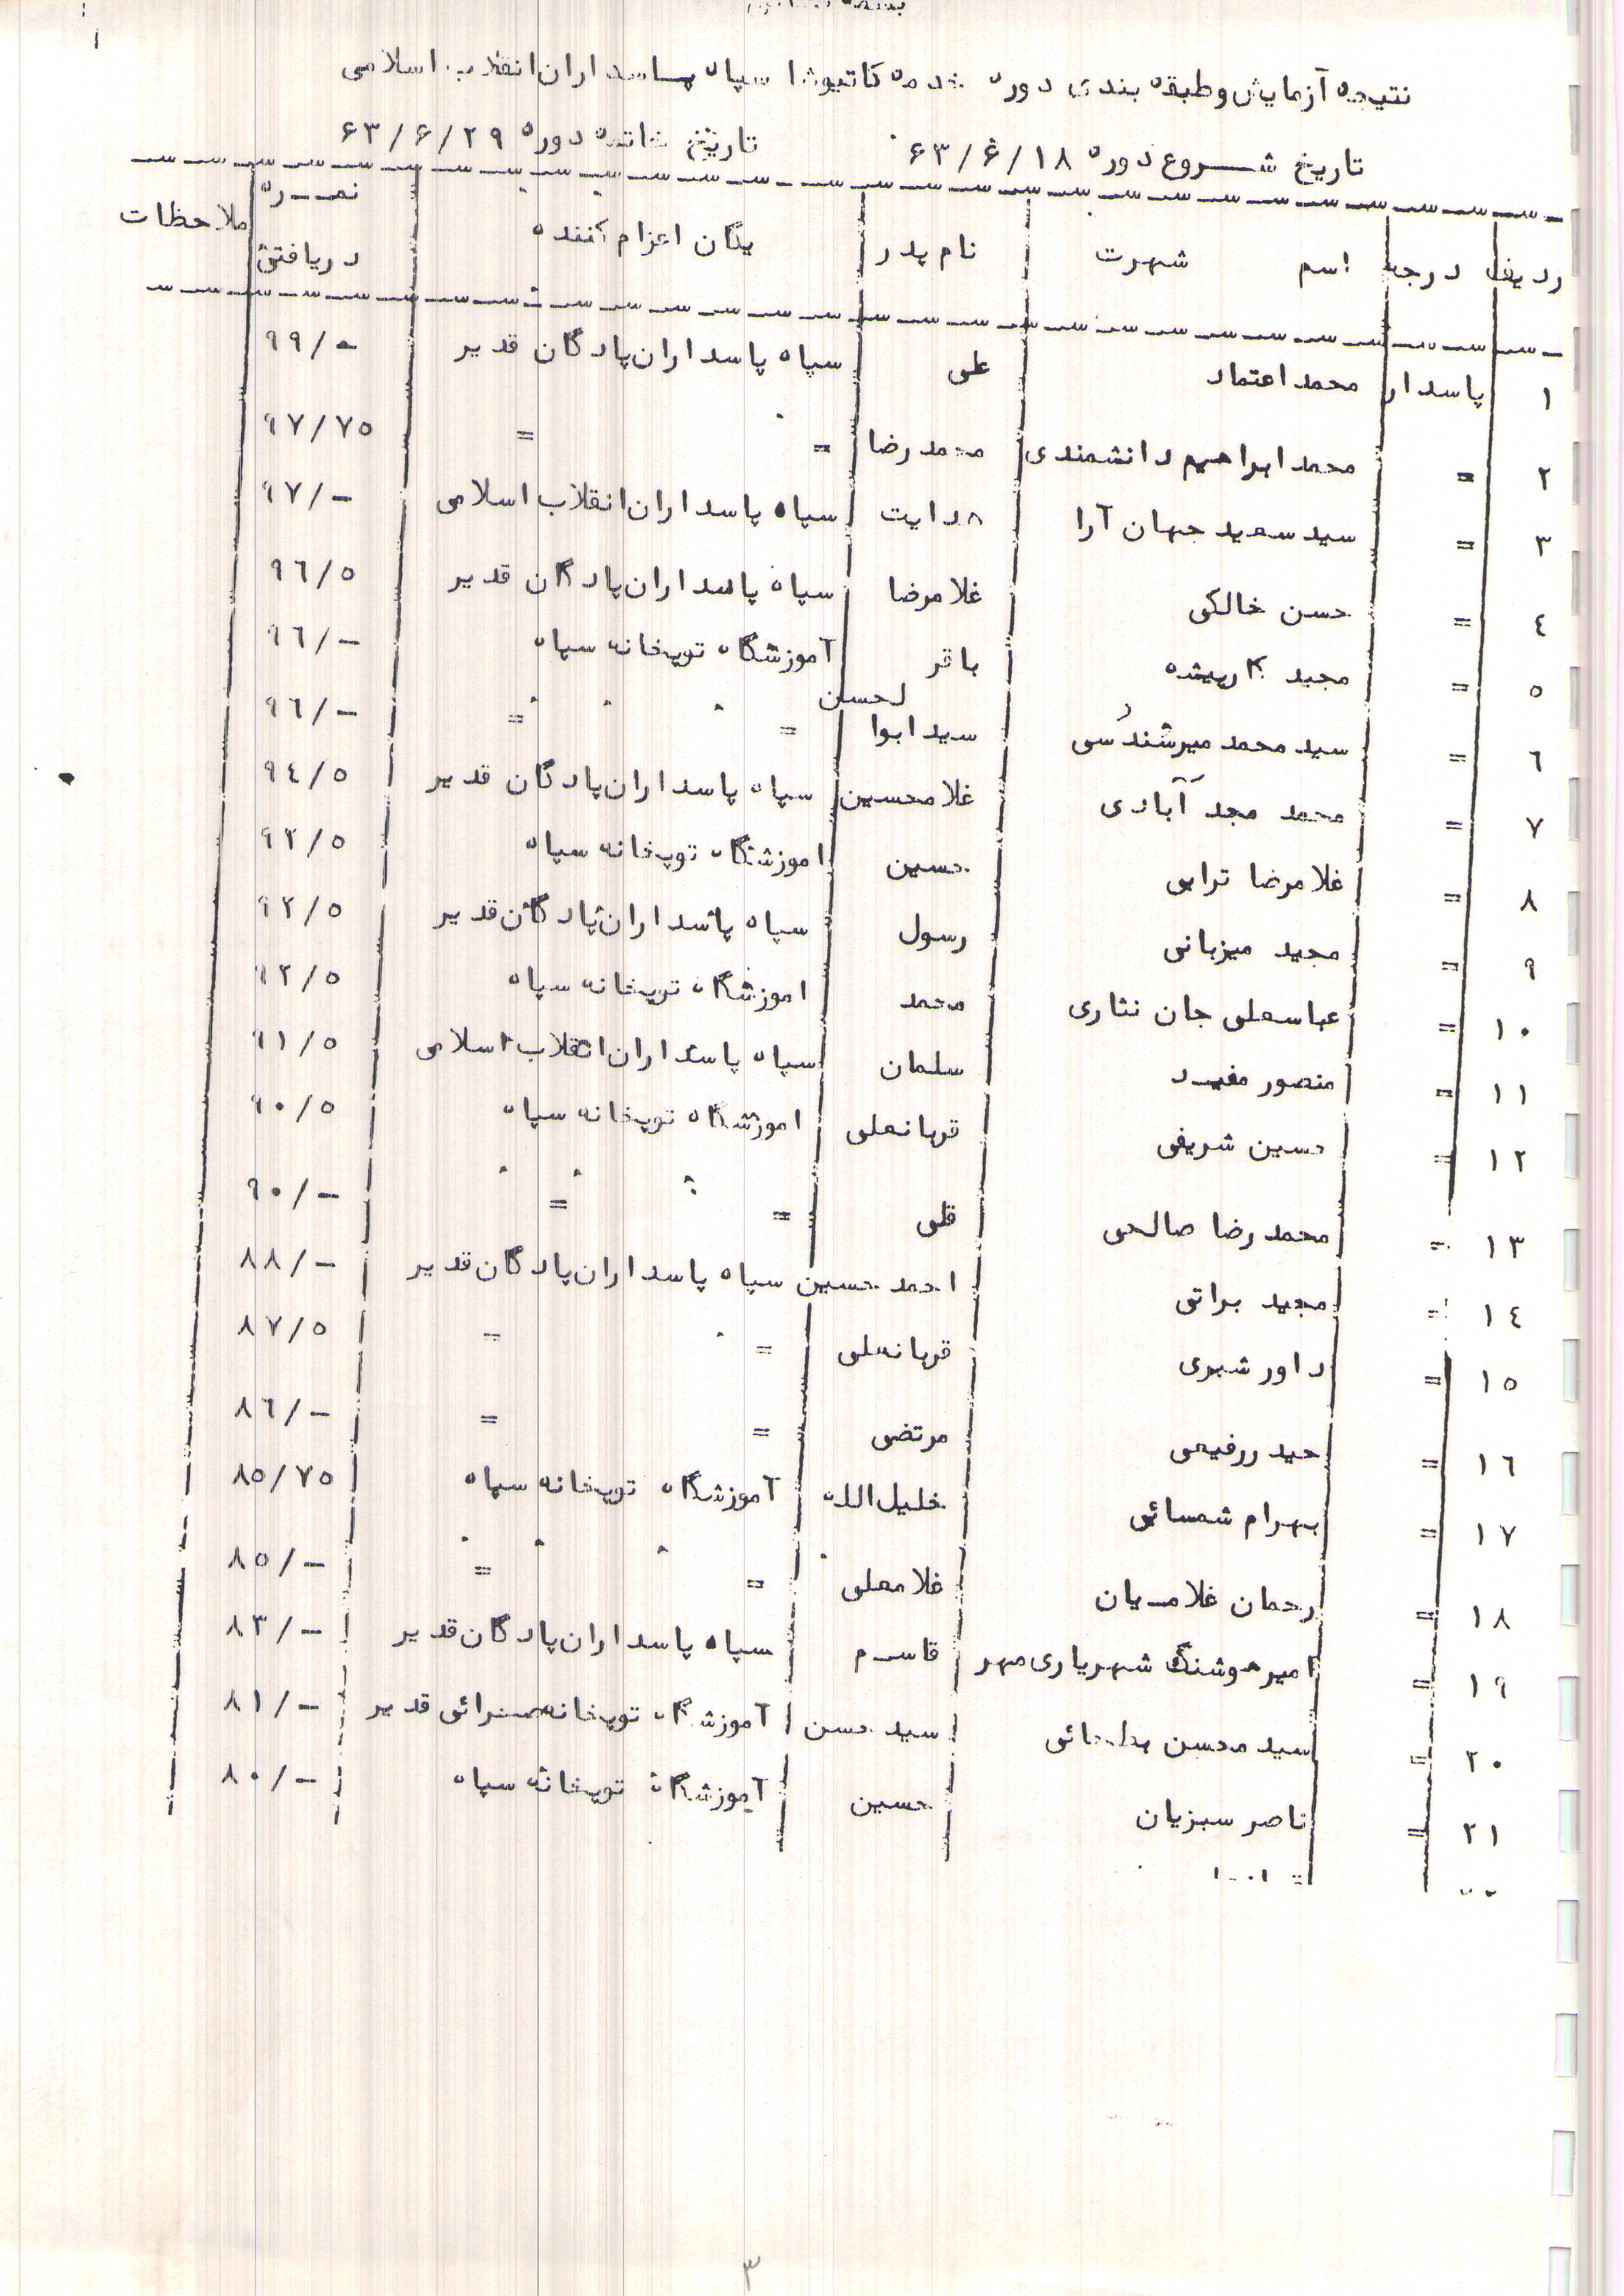 نتیجه آزمایش وطبقه بندی دوره خدمه کاتیوشا سپاه پاسداران انقلاب اسلامی
تاریخ شروع دوره ۶۳/۶/۱۸ تاریخ خاتمه دوره ۶۳/۶/۲۹
ردیف درجه اسم شهرت نام پدر یگان اعزام کننده نمره دریافتی ملاحظات
۱ پاسدار محمد اعتماد علی سپاه پاسداران پادگان قدیر ۹۹/-
۲ = محمد ابراهیم دانشمندی محمدرضا = = ۹۷/۷۵
۳ = سید سعید جهان آرا هدایت سپاه پاسداران انقلاب اسلامی ۹۷/-
٤ = حسن خالکی غلامرضا سپاه پاسداران پادگان قدیر ۹٦/۵
۵ = مجید کارپیشه باقر آموزشگاه توپخانه سپاه ۹٦/-
٦ = سید محمد میرشندسی سید ابوالحسن = = ۹٦/-
۷ = محمد مجد آبادی غلامحسین سپاه پاسداران پادگان قدیر ۹٤/۵
۸ = غلامرضا ترابی حسین اموزشگاه توپخانه سپاه ۹۲/۵
۹ = مجید میزبانی رسول سپاه پاسداران پادگان قدیر ۹۲/۵
۱۰ = عباسعلی جان نثاری محمد اموزشگاه توپخانه سپاه ۹۲/۵
۱۱ = منصور مفید سلمان سپاه پاسداران انقلاب اسلامی ۹۱/۵
۱۲ = حسین شریفی قربانعلی اموزشگاه توپخانه سپاه ۹۰/۵
۱۳ = محمدرضا صالحی قلی = = ۹۰/-
۱٤ = مجید براتی احمد حسین سپاه پاسداران پادگان قدیر ۸۸/-
۱۵ = داور شیری قربانعلی = = ۸۷/۵
۱٦ = حیدر رفیعی مرتضی = = ۸٦/-
۱۷ = بهرام شمسائی خلیل الله آموزشگاه توپخانه سپاه ۸۵/۷۵
۱۸ = رحمان غلامیان غلامعلی = = ۸۵/-
۱۹ = امیرهوشنگ شهریاری مهر قاسم سپاه پاسداران پادگان قدیر ۸۳/-
۲۰ = سید محسن سید حسن آموزشگاه توپخانه قدیر ۸۱/-
۲۱ = ناصر سبزیان حسین آموزشگاه توپخانه سپاه ۸۰/-
۳